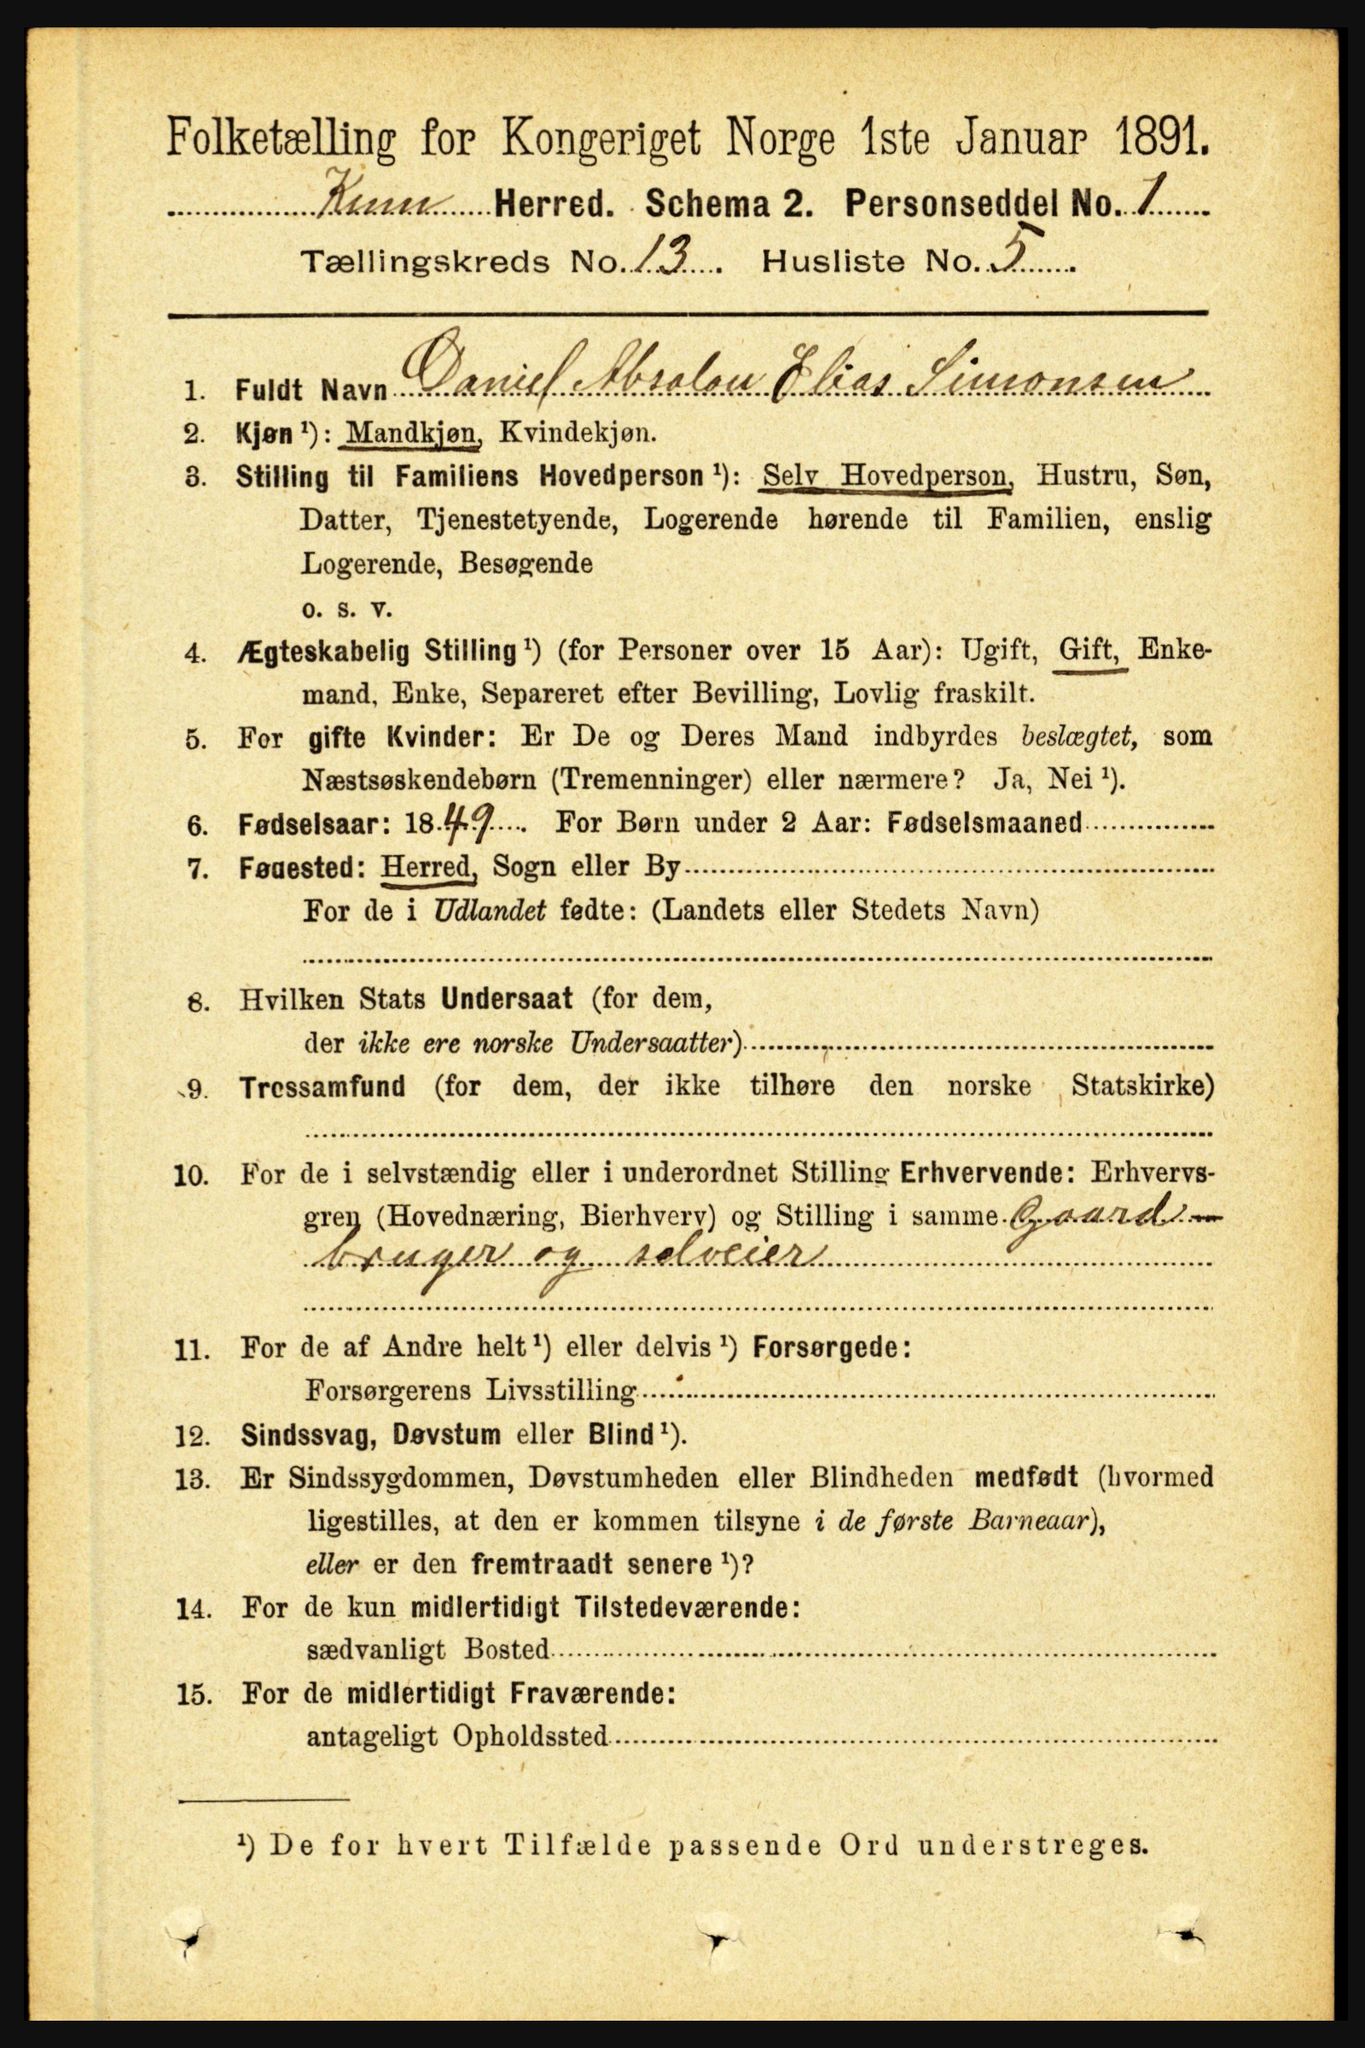 Folketælling for Kongeriget Norge 1ste Januar 1891.
Kinn Herred. Schema 2. Personseddel No. 1
Tællingskreds No. 13. Husliste No. 5
1. Fuldt Navn Daniel Absalon Elias Simonsen
2. Kjøn ¹): Mandkjøn, Kvindekjøn.
3. Stilling til Familiens Hovedperson ¹): Selv Hovedperson, Hustru, Søn,
Datter, Tjenestetyende, Logerende hørende til Familien, enslig
Logerende, Besøgende
o. s. v.
4. Ægteskabelig Stilling ¹) (for Personer over 15 Aar): Ugift, Gift, Enke-
mand, Enke, Separeret efter Bevilling, Lovlig fraskilt.
5. For gifte Kvinder: Er De og Deres Mand indbyrdes beslægtet, som
Næstsøskendebørn (Tremenninger) eller nærmere? Ja, Nei ¹).
6. Fødselsaar: 1849. For Børn under 2 Aar: Fødselsmaaned
7. Fødested: Herred, Sogn eller By
For de i Udlandet fødte: (Landets eller Stedets Navn)
8. Hvilken Stats Undersaat (for dem,
der ikke ere norske Undersaatter)
9. Trossamfund (for dem, der ikke tilhøre den norske Statskirke)
10. For de i selvstændig eller i underordnet Stilling Erhvervende: Erhvervs-
gren (Hovednæring, Bierhverv) og Stilling i samme Gaard-
bruger og selveier
11. For de af Andre helt ¹) eller delvis ¹) Forsørgede:
Forsørgerens Livsstilling
12. Sindssvag, Døvstum eller Blind ¹).
13. Er Sindssygdommen, Døvstumheden eller Blindheden medfødt (hvormed
ligestilles, at den er kommen tilsyne i de første Barneaar),
eller er den fremtraadt senere ¹)?
14. For de kun midlertidigt Tilstedeværende:
sædvanligt Bosted
15. For de midlertidigt Fraværende:
antageligt Opholdssted
¹) De for hvert Tilfælde passende Ord understreges.